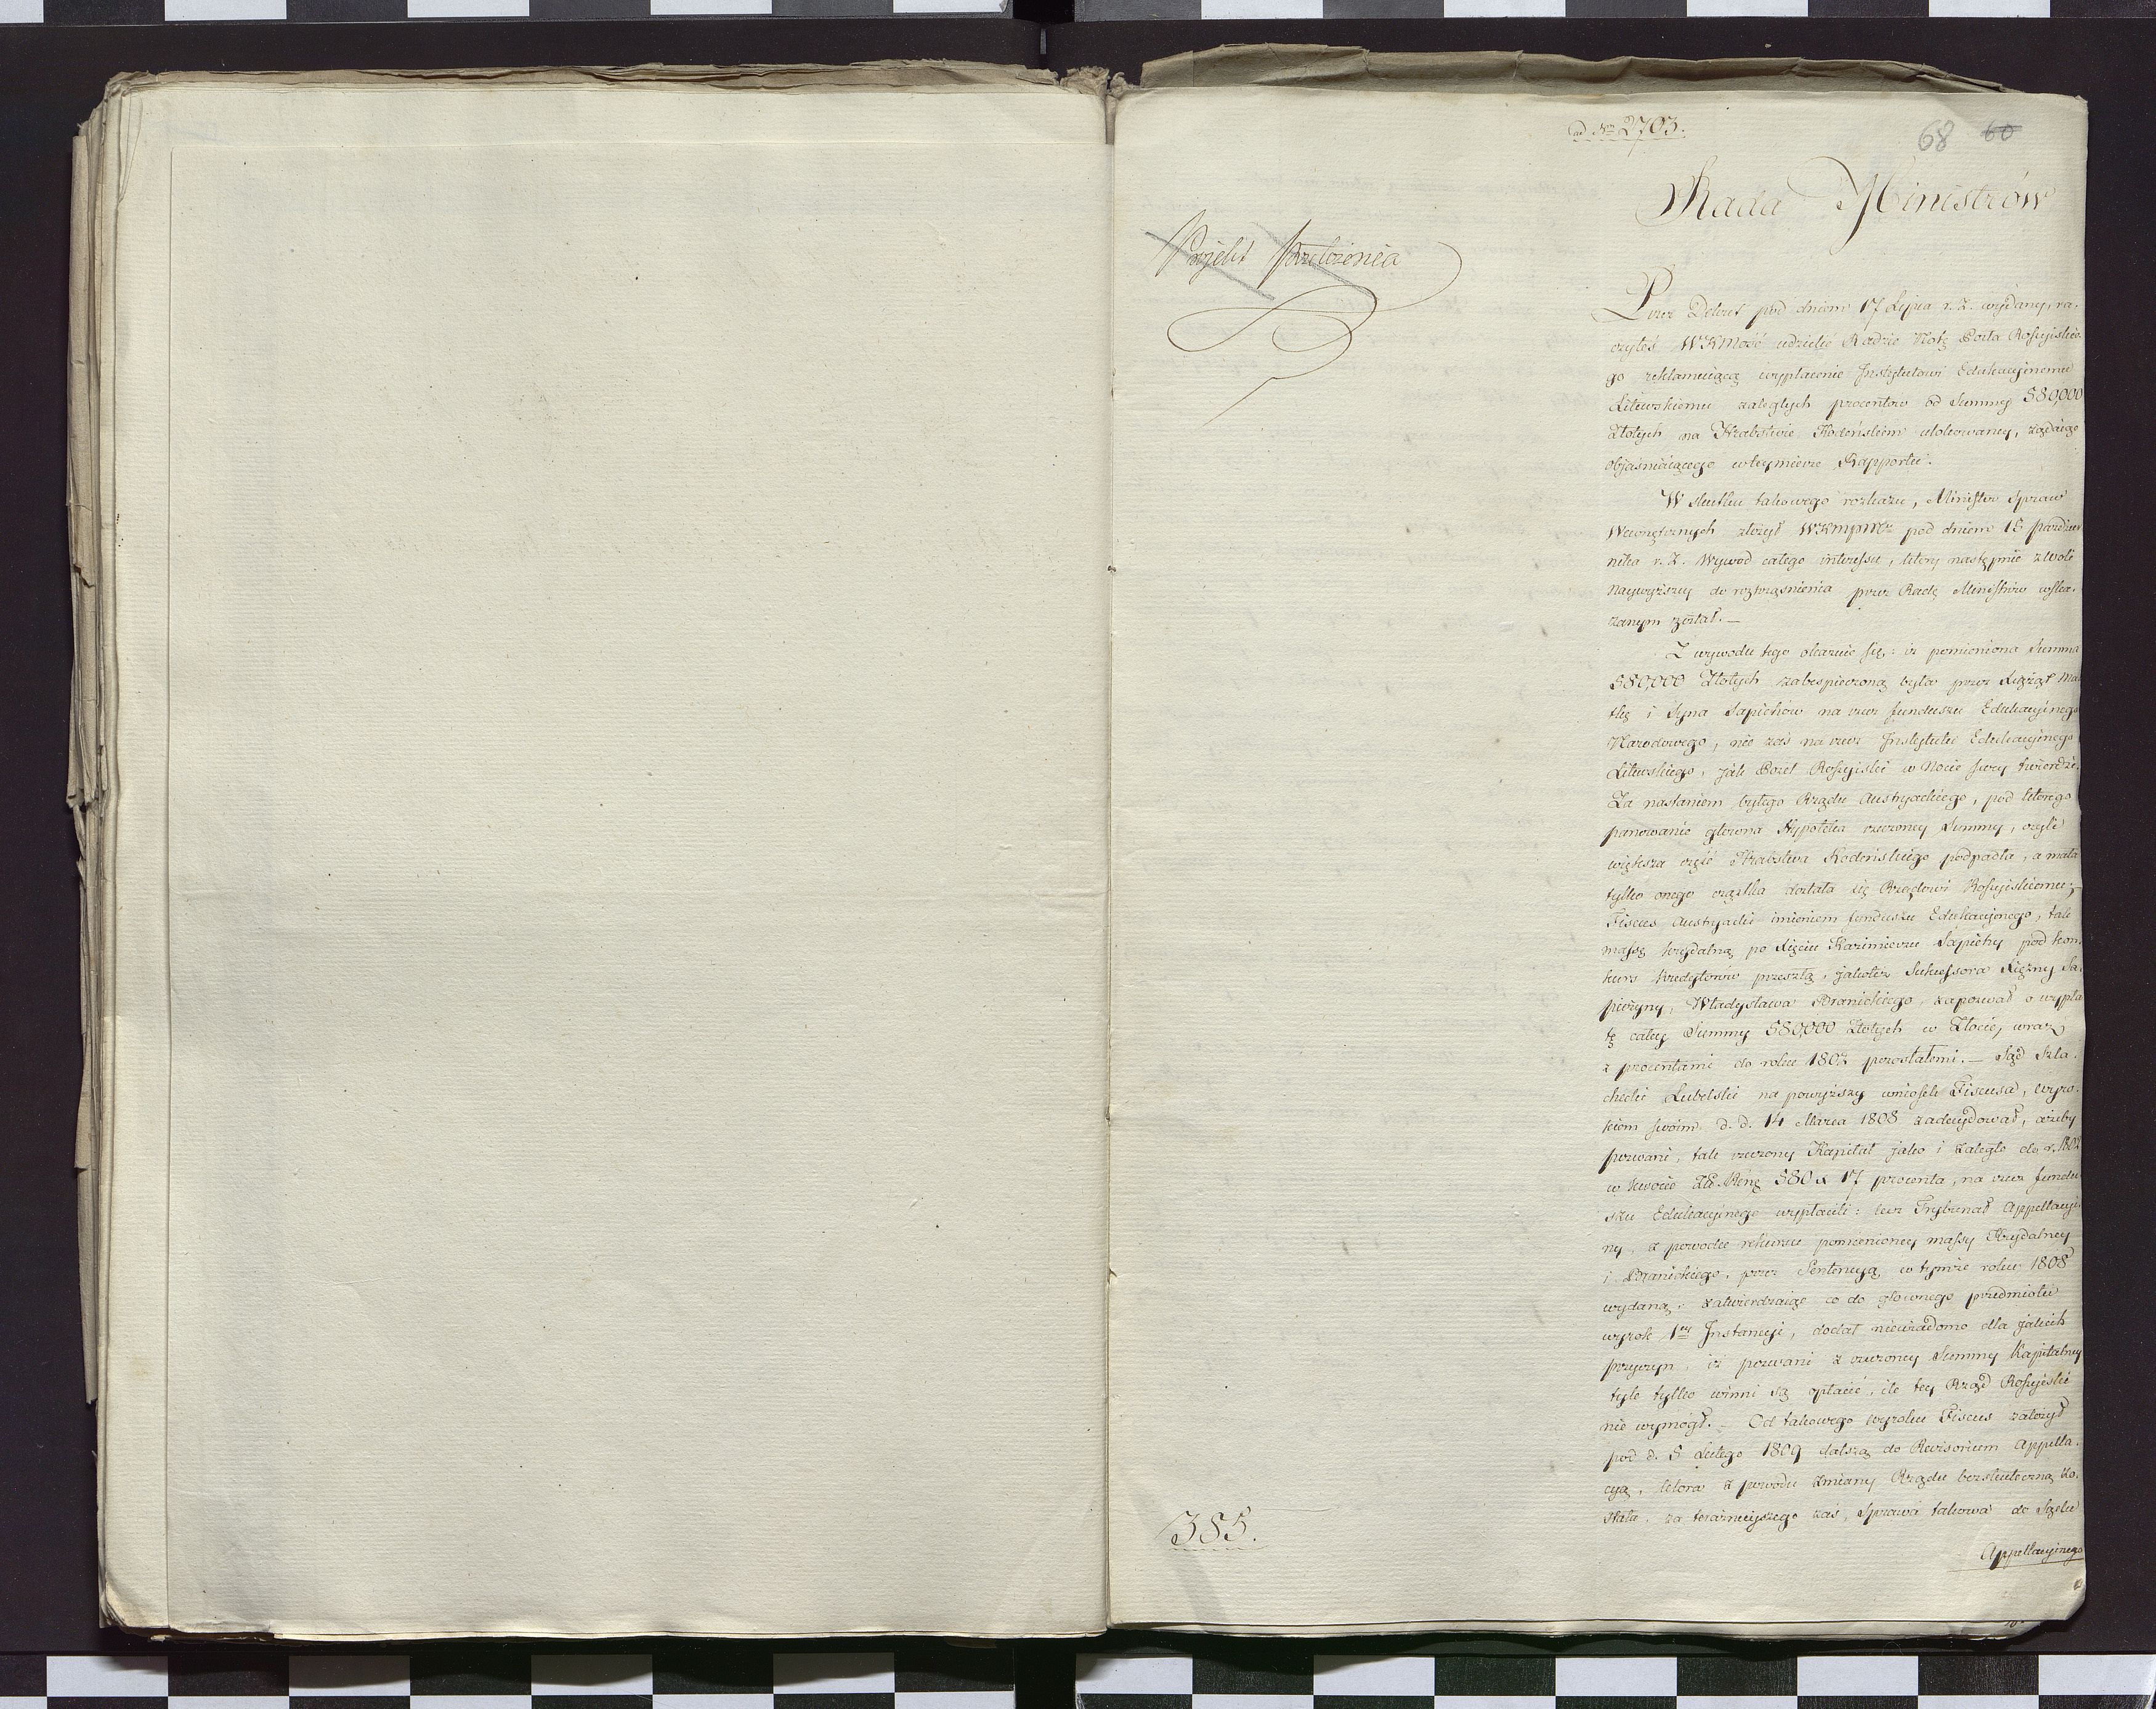 ad Nro 2703.
68 60
Rada Ministrów
Projekt Przełożenia
Przez Dekret pod dniem 17 Lipca r. z. wydany, ra-
czyłeś WKMość udzielić Radzie Notę Posła Rossyiskie-
go reklamuiącą wypłacenie Instytutowi Edukacyinemu
Litewskiemu zaległych procentow od Summy 580,000
Złotych na Hrabstwie Kodeńskim ulokowaney, żądaiąc
obiaśniaiącego w tey mierze Rapportu.
W skutku takowego rozkazu, Minister Spraw
Wewnętrznych złożył WKMPMbz pod dniem 15 Pazdzier
nika r. z. Wywod całego interessu, ktory następnie z woli
Naywyższey do roztrząśnienia przez Radę Ministrów wska-
zanym został. —
Z wywodu tego okazuie się: iż pomieniona Summa
580,000 Złotych zabespieczoną była przez Xiążąt Ma
tkę i Syna Sapiehów na rzecz funduszu Edukacyinego
Narodowego, nie zaś na rzecz Instytutu Edukacyinego
Litewskiego, jak Poseł Rossyiski w Nocie swey twierdzi.
Za nastaniem byłego Rządu Austryackiego, pod ktorego
panowanie głowna Hypoteka rzeczoney Summy, czyli
większa część Hrabstwa Kodeńskiego podpadła, a mała
tylko onego cząstka dostała się Rządowi Rossyiskiemu;
Fiscus Austryacki imieniem funduszu Edukacyjnego, tak
massę krydalną po Xięciu Kazimierzu Sapiehy pod kon-
kurs kredytorow przeszłą, jakoteż Sukcessora Xiężny Sa-
pieżyny, Władysława Branickiego, zapozwał o wypła
tę całey Summy 580,000 Złotych w Złocie, wraz
z procentami do roku 1802 pozostałemi. — Sąd Szla-
checki Lubelski na powyższy wniosek Fiscusa, wyro-
kiem swoim d. d. 14 Marca 1808 zadecydował, ażeby
pozwani, tak rzeczony Kapitał jako i zaległe do r. 1802
w kwocie Zł Reng 580 x 17 procenta, na rzecz fundu
szu Edukacyinego wypłacili: lecz Trybunał Appellacyi-
ny, z powodu rekursu pomienioney massy Krydalney
i Branickiego, przez Sentencyą w tymże roku 1808
wydaną, zatwierdzaiąc co do głownego przedmiotu
wyrok 1ey Instancyi, dodał niewiadomo dla jakich
przyczyn, iż pozwani z rzeczoney Summy Kapitalney
tyle tylko winni są opłacić, ile tey Rząd Rossyiski
nie wymógł. — Od takowego wyroku Fiscus założył
pod d. 5 Lutego 1809 dalszą do Revisorium Appella-
cyą, ktora z powodu zmiany Rządu bezskuteczną zo-
stała. za teraźnieyszego zaś, Sprawa takowa do Sądu
Appellacyinego
385.